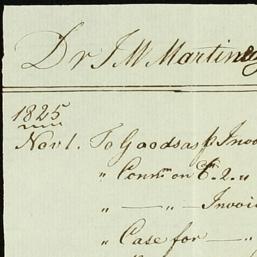 Dr J W Martin
1825
Nov 1. To Goods as p Invoi
" Comm on
" — " — Invoi
" Case for — "